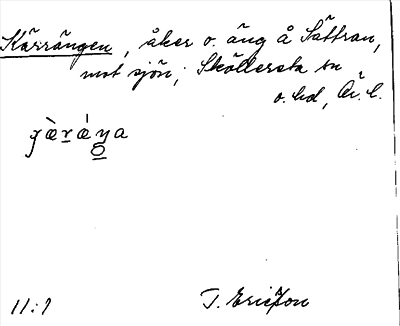 Kärrängen, åker o. äng å Sättran,
mot sjön; Sköllersta sn
o. hd, Ör. l.
11:1 T. Ericsson